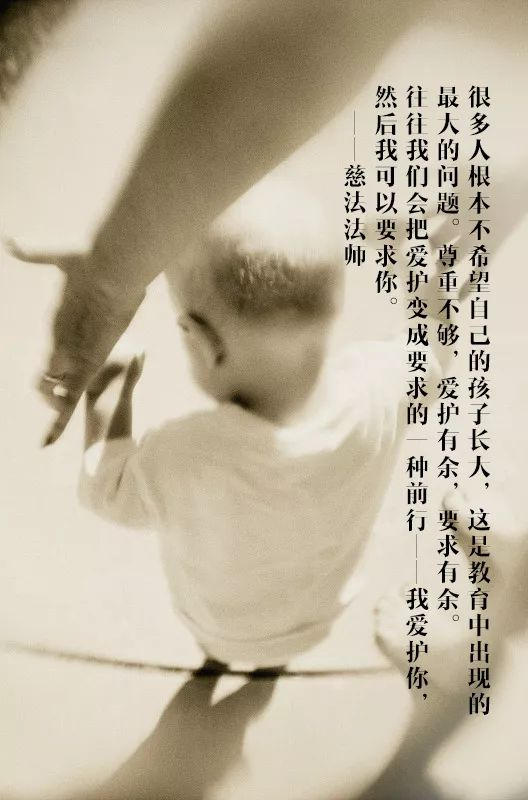 很多人根本不希望自己的孩子长大，这是教育中出现的
最大的问题。尊重不够，爱护有余，要求有余。
往往我们会把爱护变成要求的一种前行——我爱护你，
然后我可以要求你。
——慈法法师